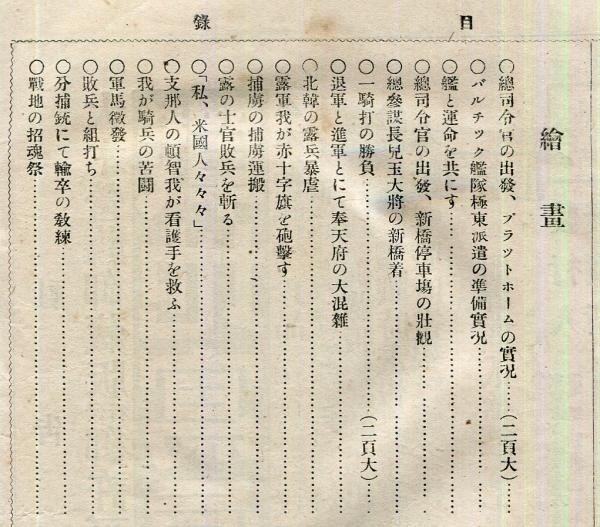 目錄
繪畫
○總司令官の出發、プラットホームの實況……(二頁大)……
○バルチック艦隊極東派遣の準備實況……
○艦と運命を共にす……
○總司令官の出發、新橋停車塲の壯觀……
○總參謀長兒玉大將の新橋着……
○一騎打の勝負……(二頁大)……
○退軍と進軍とにて奉天府の大混雜……
○北韓の露兵暴虐……
○露軍我が赤十字旗を砲擊す……
○捕虜の捕虜運搬……
○露の士官敗兵を斬る……
○「私、米國人々々々」……
○支那人の頓智我が看護手を救ふ……
○我が騎兵の苦鬪……
○軍馬徵發……
○敗兵と組打ち……
○分捕銃にて輸卒の敎練……
○戰地の招魂祭……